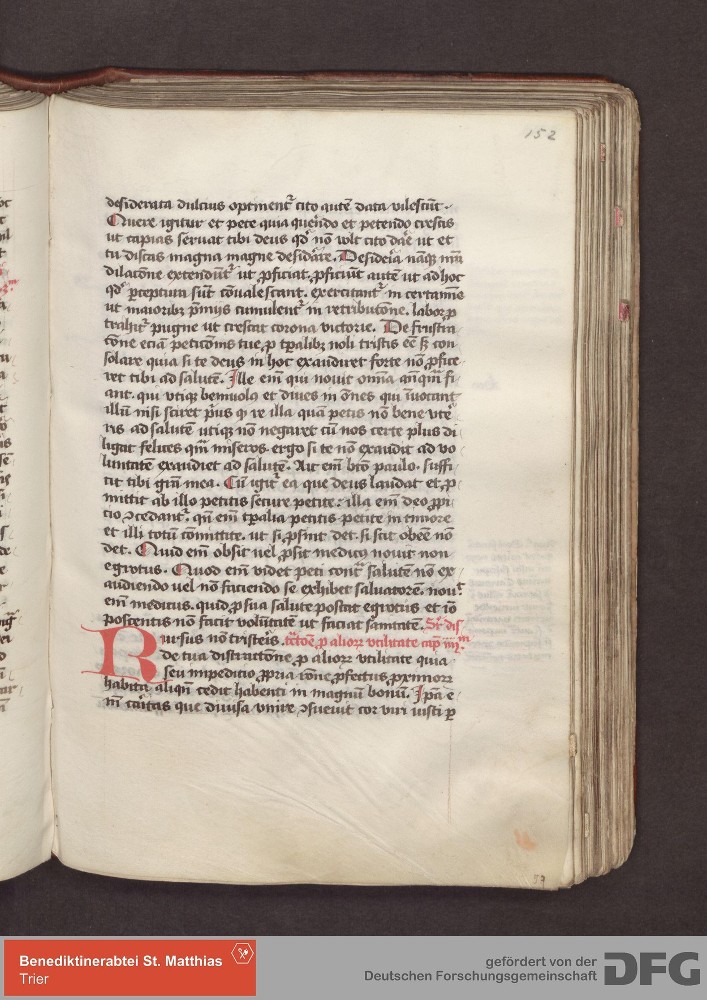 152
desiderata dulcius optinent᷑ cito autē data vilescūt.
Quere igitur et pete quia querēdo et petendo crescis
ut capias seruat tibi deus qd̓ nō vult cito dar̄e ut et
tu discas magna magne desid̓are. Desideria nāqꝫ
dilacōne extendunt᷑ ut ꝓficiāt. ꝓficiūt autē ut ad hoc
qd̓ ꝑceptura sūt cōualescant. exercitant᷑ in certamīe
ut maiorib᷒ p̄mijs cumulent᷑ in retributōne. labor ꝓ
trahit᷑ pugne ut crescat corona victorie. De frustra
cōne eciā peticōnis tue ꝓ tꝑalibꝫ noli tristis eē sꝫ con
solare quia si te deus in hoc exaudiret forte nō ꝓfice
ret tibi ad salutē. Ille em̄ qui nouit omīa anq̄m̄ fi
ant. qui vtiqꝫ beniuolꝰ et diues in ōnes qui īuocant
illū nisi sciret p̄us illa quā petis non bene vtē
ris ad salutē utiqꝫ nō negaret cū nos certe plus di
ligat felices q̄m̄ miseros. ergo si te nō exaudit ad vo
luntatē exaudiet ad salutē. Ait em̄ bt̄o paulo. suffi
cit tibi gr̄a mea. Cū igit᷑ ea que deus laudat et ꝓ
mittit ab illo petitis secure petite: illa em̄ deo ꝓpi
cio ꝯcedant᷑. qn̄ em̄ tꝑalia petitis petite in timore
et illi totū cōmittite. ut si ꝓsint det. si scit obeē nō
det. Quid em̄ obsit uel ꝓsit medicꝰ nouit non
egrotus. Quod em̄ videt peti cont᷑ salutē nō ex
audiendo uel nō faciendo se exhibet saluatorē. nouit
em̄ medicus. quid ꝓ sua salute poscat egrotus et iō
poscentis nō facit volūtatē ut faciat sanitatē. Sr̄ dis
Rursus nō tristeris. tct̄oē ꝓ aliorꝝ vtilitate cap̄ iiij.
de tua distractōne ꝓ aliorꝝ vtilitate quia
seu impeditio ꝓpria ꝓfectus ꝓximorꝝ
habita aliqn̄ cedit habenti in magnū bonū. Ip̄a e
m̄ cāitas que diuisa vnire ꝯsueuit cor viri iusti ꝑ
37
Benediktinerabtei St. Matthias
Trier
gefördert von der
Deutschen Forschungsgemeinschaft
DFG